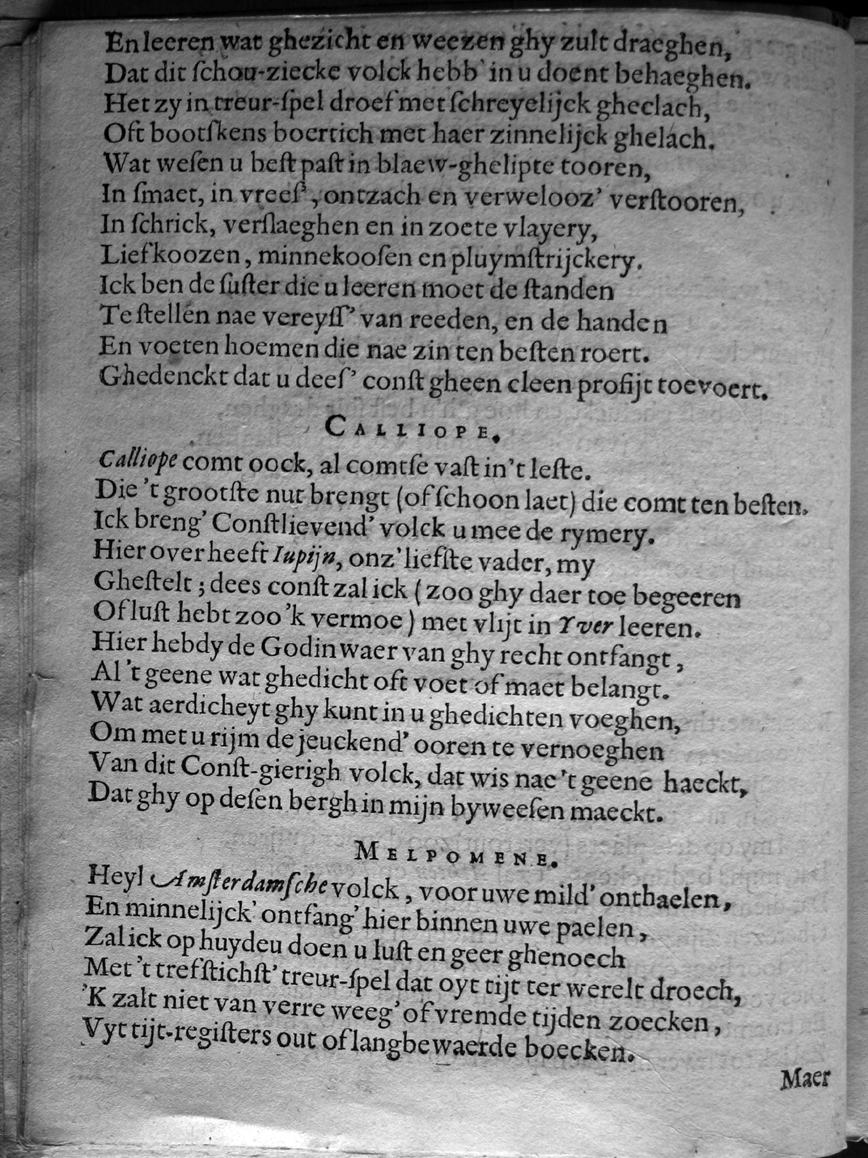 En leeren wat ghezicht en weezen ghy zult draeghen,
Dat dit ſchou-ziecke volck hebb' in u doent behaeghen.
Het zy in treur-ſpel droef met ſchreyelijck gheclach,
Oft bootſkens boertich met haer zinnelijck ghelach.
Wat weſen u beſt paſt in blaew-ghelipte tooren,
In ſmaet, in vreeſ', ontzach en verwelooz' verſtooren,
In ſchrick, verſlaeghen en in zoete vlayery,
Liefkoozen, minnekooſen en pluymſtrijckery.
Ick ben de ſuſter die u leeren moet de ſtanden
Te ſtellen nae vereyſſ' van reeden, en de handen
En voeten hoemen die nae zin ten beſten roert.
Ghedenckt dat u deeſ' conſt gheen cleen profijt toevoert.
CALLIOPE.
Calliope comt oock, al comtſe vaſt in't leſte.
Die 't grootſte nut brengt (of ſchoon laet) die comt ten beſten.
Ick breng' Conſtlievend' volck u mee de rymery.
Hier over heeft Iupijn, onz' liefſte vader, my
Gheſtelt; dees conſt zal ick (zoo ghy daer toe begeeren
Of luſt hebt zoo 'k vermoe) met vlijt in Yver leeren.
Hier hebdy de Godin waer van ghy recht ontfangt,
Al 't geene wat ghedicht oft voet of maet belangt.
Wat aerdicheyt ghy kunt in u ghedichten voeghen,
Om met u rijm de jeuckend' ooren te vernoeghen
Van dit Conſt-gierigh volck, dat wis nae 't geene haeckt,
Dat ghy op deſen bergh in mijn byweeſen maeckt.
MELPOMENE.
Heyl Amſterdamſche volck, voor uwe mild' onthaelen,
En minnelijck' ontfang' hier binnen uwe paelen,
Zal ick op huydeu doen u luſt en geer ghenoech
Met 't trefſtichſt' treur-ſpel dat oyt tijt ter werelt droech,
'K zalt niet van verre weeg' of vremde tijden zoecken,
Vyt tijt-regiſters out of langbewaerde boecken.
Maer